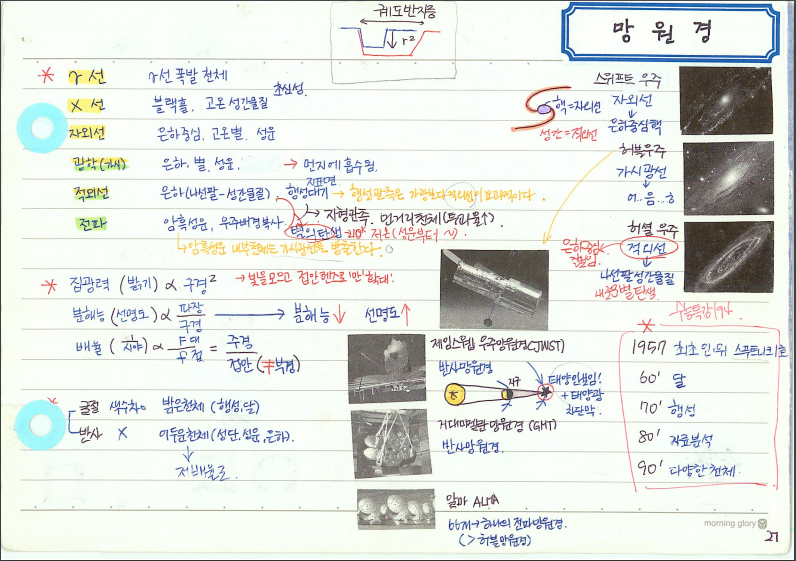 궤도반지름
r²
망원경
* γ선 γ선 폭발 천체
X선 블랙홀, 고온 성간물질 초신성
자외선 은하중심, 고온별, 성운
광학(가시) 은하, 별, 성운, → 먼지에 흡수됨.
적외선 은하(나선팔-성간물질) 행성대기 지표면 → 행성관측은 가광보다 적외선이 효과적이다.
전파 암흑성운, 우주배경복사
→ 지형관측. 먼거리천체(투과율↑)
별의 탄생 저온(성운부터 ~)
↳ 암흑성운 내부천체는 가시광선을 방출한다.
핵=자외선
성간=적외선
스위프트 우주
자외선
↓
은하중심핵
허블우주
가시광선
↓
허셜 우주
적외선
↓
나선팔 성간물질
별탄생
은하중심
* 집광력 (밝기) ∝ 구경² → 빛을 모으고 접안렌즈로 '만' 확대!
분해능 (선명도) ∝ 파장/구경 → 분해능↓ 선명도↑
배율 (1/시야) ∝ F대/F접 = 주경/접안 (≠부경)
* 굴절 색수차○ 밝은천체 (행성,달)
반사 X 어두운천체 (성단,성운,은하).
↓
저배율로.
제임스웹 우주망원경(JWST)
반사망원경
지구
태양안보임!
+ 태양광
차단막.
거대마젤란 망원경 (GMT)
반사망원경.
알마 ALMA
66개→하나의 전파망원경.
(>허블망원경)
수능특강 194.
*
1957 최초 인위 스푸트니크1호
60' 달
70' 행성
80' 자료분석
90' 다양한 천체.
morning glory
27